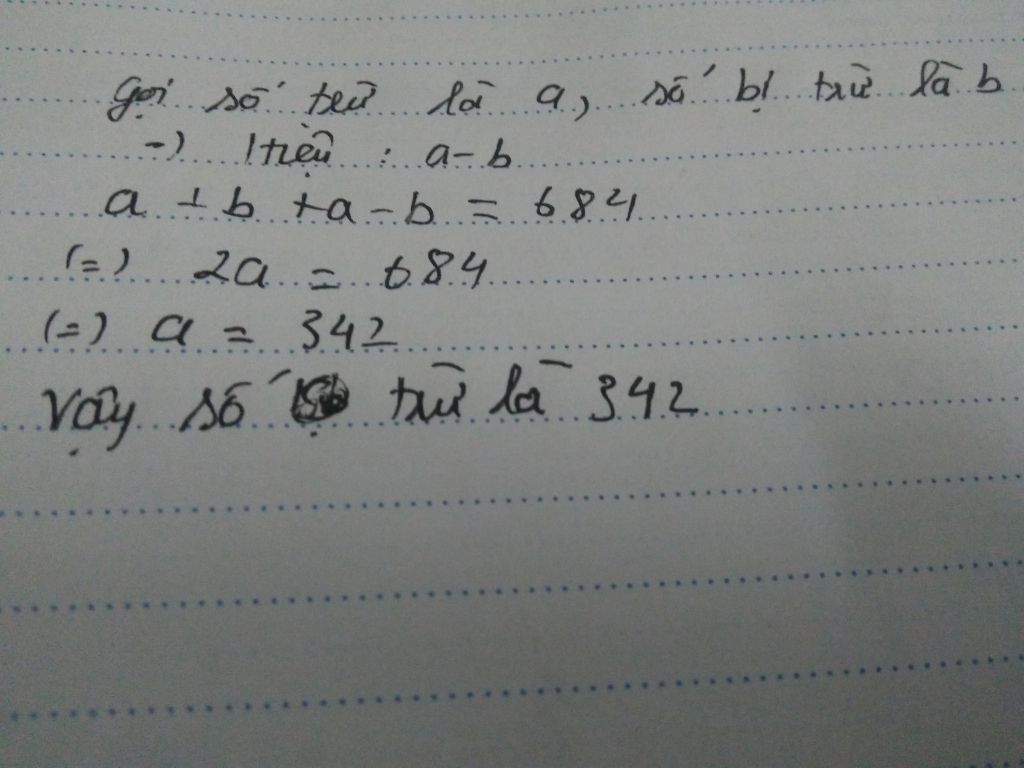 Gọi số trừ là a, số bị trừ là b
-) Htiệu : a-b
a + b + a - b = 684
(=) 2a = 684
(=) a = 342
Vậy số trừ là 342